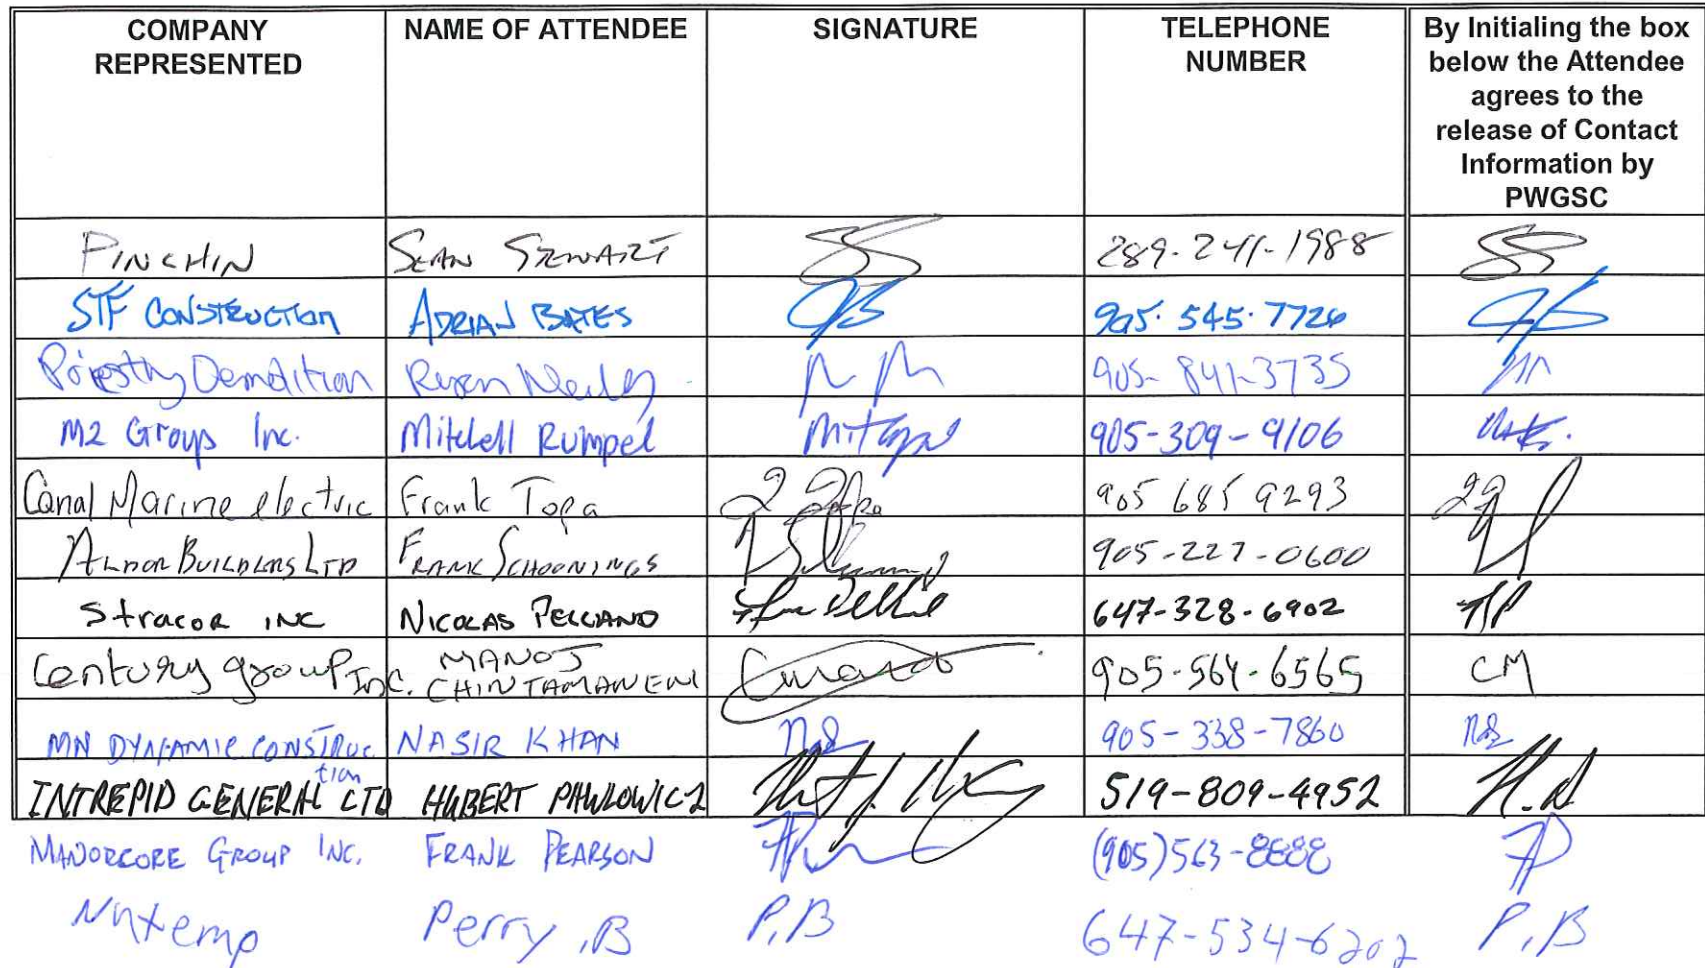 COMPANY REPRESENTED NAME OF ATTENDEE SIGNATURE TELEPHONE NUMBER By Initialing the box below the Attendee agrees to the release of Contact Information by PWGSC
PINCHIN SEAN STEWART SS 289-241-1988 SS
STF CONSTRUCTION ADRIAN BATES 905.545.7726
Priestly Demolition Ryan 905-841-3735
M2 Group Inc. Mitchell Rumpel 905-309-9106
Canal Marine electric Frank Topa 905 685 9293
ALDOR BUILDERS LTD FRANK SCHOONINGS 905-227-0600
Stracor INC NICOLAS PELLIANO 647-328-6902
Century group Inc. MANOJ CHINTAMANENI 905-564-6565 CM
MN DYNAMIC CONSTRUCTION NASIR KHAN 905-338-7860
INTREPID GENERAL LTD HUBERT PAWLOWICZ 519-809-4952
MANORCORE GROUP INC. FRANK PEARSON (905)563-8888 FP
Perry, B P,B 647-534-6202 P,B